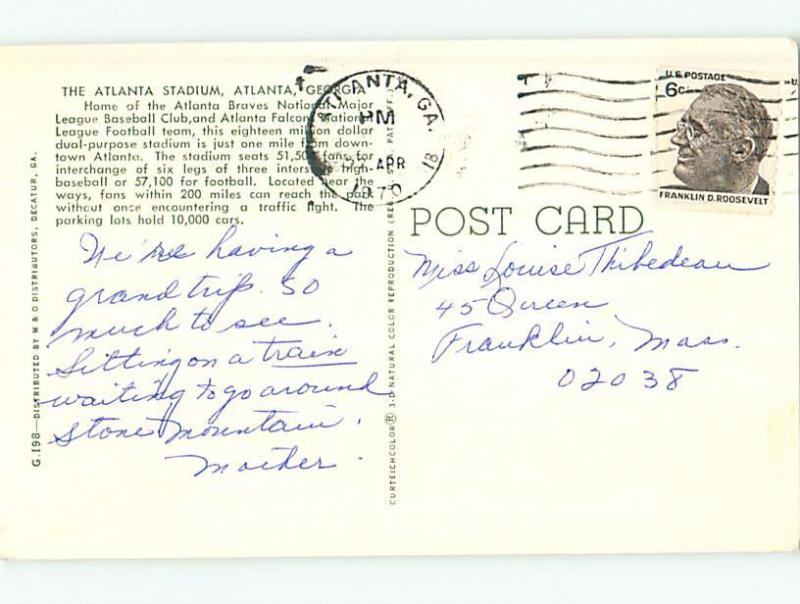 THE ATLANTA STADIUM, ATLANTA, GEORGIA
Home of the Atlanta Braves National Major
League Baseball Club, and Atlanta Falcon National
League Football team, this eighteen million dollar
dual-purpose stadium is just one mile from down-
town Atlanta. The stadium seats 51,500 fans for
interchange of six legs of three interstate high-
baseball or 57,100 for football. Located near the
ways, fans within 200 miles can reach the park
without once encountering a traffic light. The
parking lots hold 10,000 cars.
We're having a
grand trip. So
much to see.
Sitting on a train
waiting to go around
Stone Mountain.
Mother.
G.198—DISTRIBUTED BY M & O DISTRIBUTORS, DECATUR, GA.
CURTEICHCOLOR® 3-D NATURAL COLOR REPRODUCTION (REG. U.S.A. PAT. OFF.)
ATLANTA, GA.
PM
APR
1970
18
U.S. POSTAGE
6c
FRANKLIN D. ROOSEVELT
POST CARD
Miss Louise Thibedeau
45 Queen
Franklin, Mass.
02038